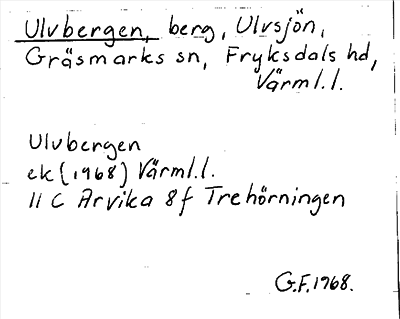 Ulvbergen, berg, Ulvsjön,
Gräsmarks sn, Fryksdals hd,
Värml.l.
Ulvbergen
ek (1968) Värml.l.
11 C Arvika 8f Trehörningen
G.F. 1968.